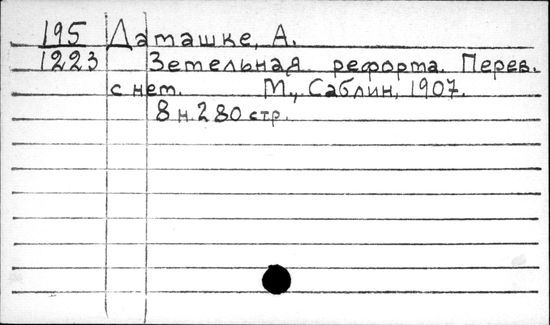 195 Дамашке, А.
1223 Земельная реформа. Перев.
с нем. М., Саблин, 1907.
8 н. 280 стр.